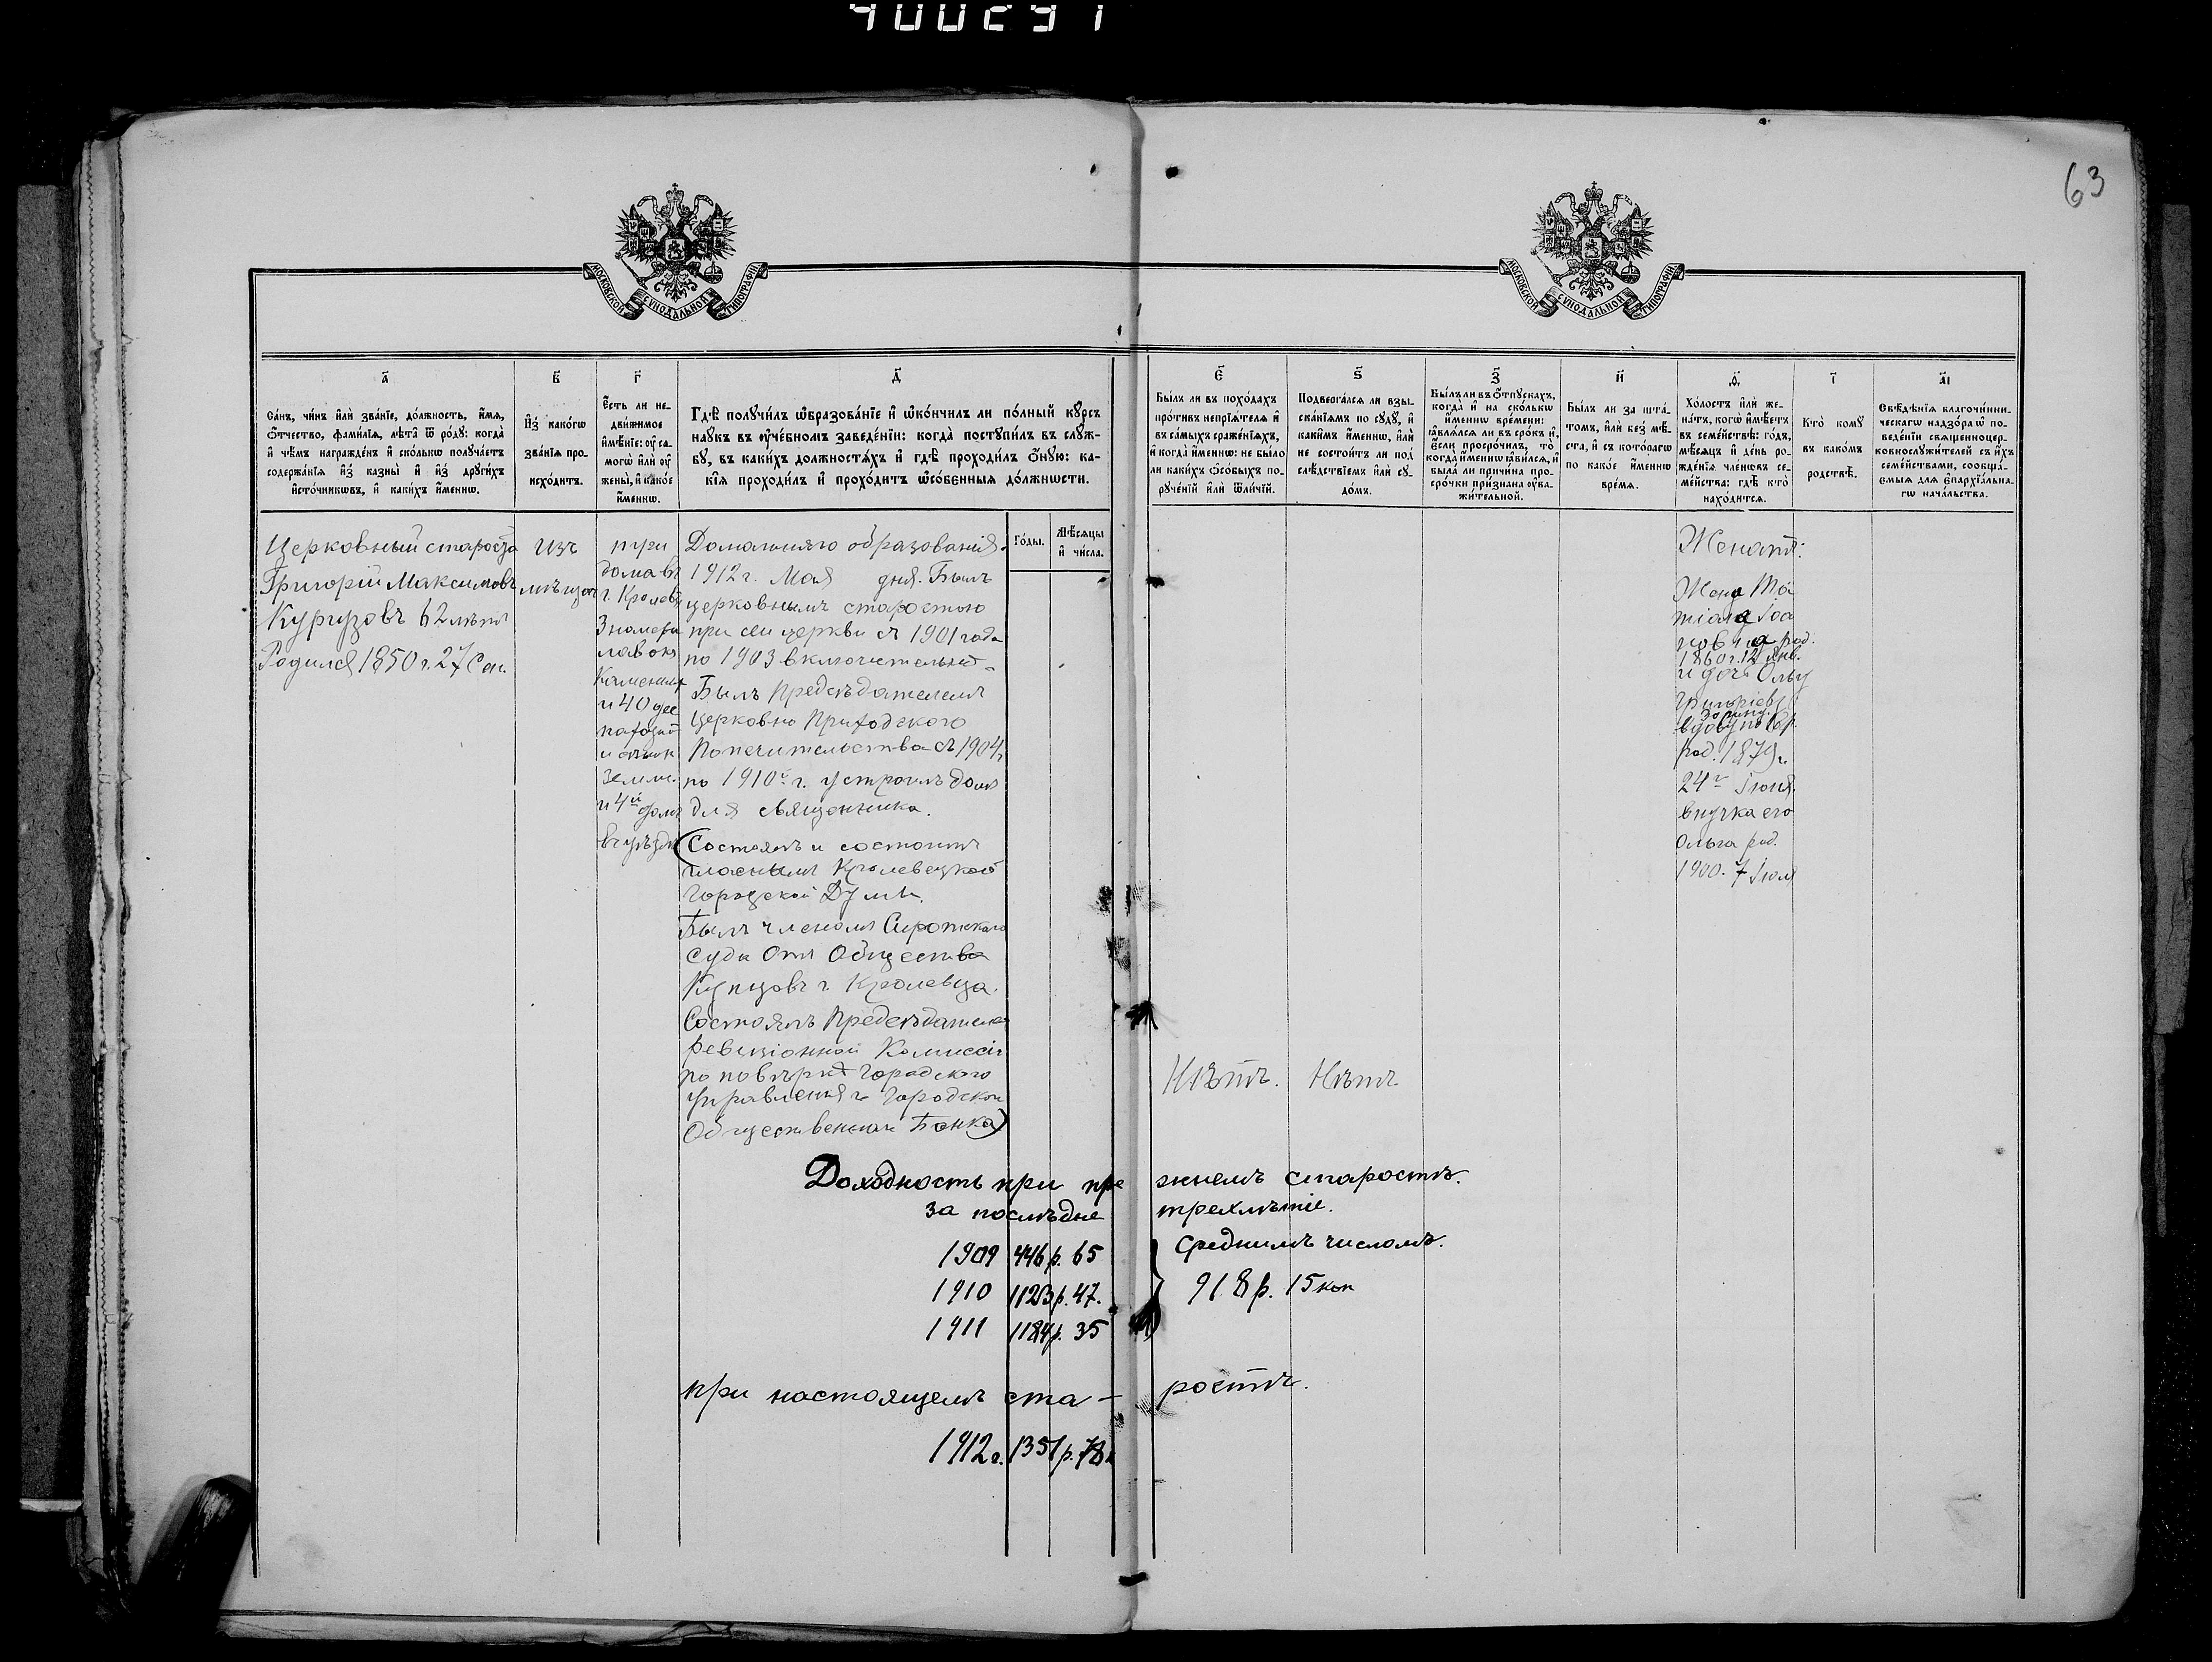 400231
63
МОСКОВСКОЙ СѴНОДАЛЬНОЙ ТИПОГРАФІИ
МОСКОВСКОЙ СѴНОДАЛЬНОЙ ТИПОГРАФІИ
а҃
Са́нъ, чи́нъ и҆лѝ зва́нїе, до́лжность, и҆́мѧ,
ѻ҆́тчество, фами́лїѧ, лѣ́та ѿ ро́дꙋ: когда̀
и҆ чѣ́мъ награжде́нъ и҆ ско́лькѡ полꙋча́етъ
содержа́нїѧ и҆з̾ казны̀ и҆ и҆з̾ дрꙋги́хъ
и҆сто́чникѡвъ, и҆ каки́хъ и҆́меннѡ.
в҃
И҆з̾ како́гѡ
зва́нїѧ про-
исхо́дитъ.
г҃
Є҆́сть ли не-
дви́жимое
и҆мѣ́нїе: ᲂу҆ са-
могѡ̀ и҆лѝ ᲂу҆
жены̀, и҆ како́е
и҆́меннѡ.
д҃
Гдѣ̀ полꙋчи́лъ ѡ҆бразова́нїе и҆ ѡ҆ко́нчилъ ли по́лный кꙋ́рсъ
наꙋ́къ въ ᲂу҆че́бномъ заведе́нїи: когда̀ постꙋпи́лъ въ слꙋ́ж-
бꙋ, въ каки́хъ должностѧ́хъ и҆ гдѣ̀ проходи́лъ ѻ҆́нꙋю: ка-
кі́ѧ проходи́лъ и҆ прохо́дитъ ѡ҆со́бенныѧ до́лжнѡсти.
Го́ды.
Мѣ́сѧцы
и҆ чи́сла.
є҃
Бы́лъ ли въ похо́дахъ
про́тивъ непрїѧ́телѧ и҆
въ са́мыхъ сраже́нїѧхъ,
и҆ когда̀ и҆́меннѡ: не бы́ло
ли каки́хъ ѻ҆со́быхъ по-
рꙋче́нїй и҆лѝ ѿли́чїй.
ѕ҃
Подверга́лсѧ ли взы-
ска́нїѧмъ по сꙋдꙋ̀, и҆
каки́мъ и҆́меннѡ, и҆лѝ
не состои́тъ ли под̾
слѣ́дствїемъ и҆лѝ сꙋ-
до́мъ.
з҃
Бы́лъ ли въ ѻ҆́тпꙋскахъ,
когда̀ и҆ на ско́лькѡ
и҆́меннѡ вре́мени:
ꙗ҆влѧ́лсѧ ли въ сро́къ и҆,
є҆́сли просро́чилъ, то̀
когда̀ и҆́меннѡ ꙗ҆ви́лсѧ, и҆
была́ ли причи́на про-
сро́чки при́знана ᲂу҆ва-
жи́тельной.
и҃
Бы́лъ ли за шта́-
томъ, и҆лѝ без̾ мѣ́-
ста, и҆ съ кото́рагѡ
по како́е и҆́меннѡ
вре́мѧ.
ѳ҃
Хо́лостъ и҆лѝ же-
на́тъ, когѡ̀ и҆мѣ́етъ
въ семе́йствѣ: го́дъ,
мѣ́сѧцъ и҆ де́нь ро-
жде́нїѧ чле́новъ се-
ме́йства: гдѣ̀ кто̀
нахо́дитсѧ.
і҃
Кто̀ комꙋ̀
въ како́мъ
родствѣ̀.
а҃і
Свѣ́дѣнїѧ благочи́нни-
ческагѡ надзо́ра ѡ҆ по-
веде́нїи свѧщенноцер-
ковнослꙋжи́телей съ и҆́хъ
семе́йствами, сообща́-
ємыѧ длѧ є҆парх́їальна-
гѡ нача́льства.
Церковный староста
Григорій Максимовъ
Куригузовъ 62 лѣтъ
Родился 1850 г. 27 Сен.
изъ
мѣщан
три
дома въ
г. Кролев
и 40 дес
земли.
и 4й домъ
въ уѣздѣ
Домашняго образованія.
1912 г. Мая дня. Былъ
церковнымъ старостою
при сей церкви съ 1901 года
по 1903 включительно.
Былъ Предсѣдателемъ
Церковно Приходского
Попечительства съ 1904 г.
по 1910й г. устроилъ домъ
для священника.
(Состоялъ и состоитъ
гласнымъ Кролевецкой
Городской Думы.
Былъ членомъ Сиротскаго
Суда отъ Общества
Купцовъ г. Кролевца.
Состоялъ Предсѣдателе
Ревизіонной Комиссіи
по повѣркѣ Городского
Управленія и Городского
Общественнаго Банка)
Женатъ:
Жена Та
тіана Іоа
новна род.
1860 г. 12 Янв.
и дочь Ольгу
Григоріеву
вдову
род. 1879 г.
24го Іюня.
внучка его
Ольга род.
1900. 7 Іюля
Нѣтъ. Нѣтъ
Доходность при прежнемъ старостѣ.
за послѣдне трехлѣтіе.
1909 446 р. 65 Среднимъ числомъ.
1910 1123 р. 47. 918 р. 15 коп
1911 1184 р. 35
при настоящемъ ста- ростѣ.
1912 г. 1351 р. 78 к